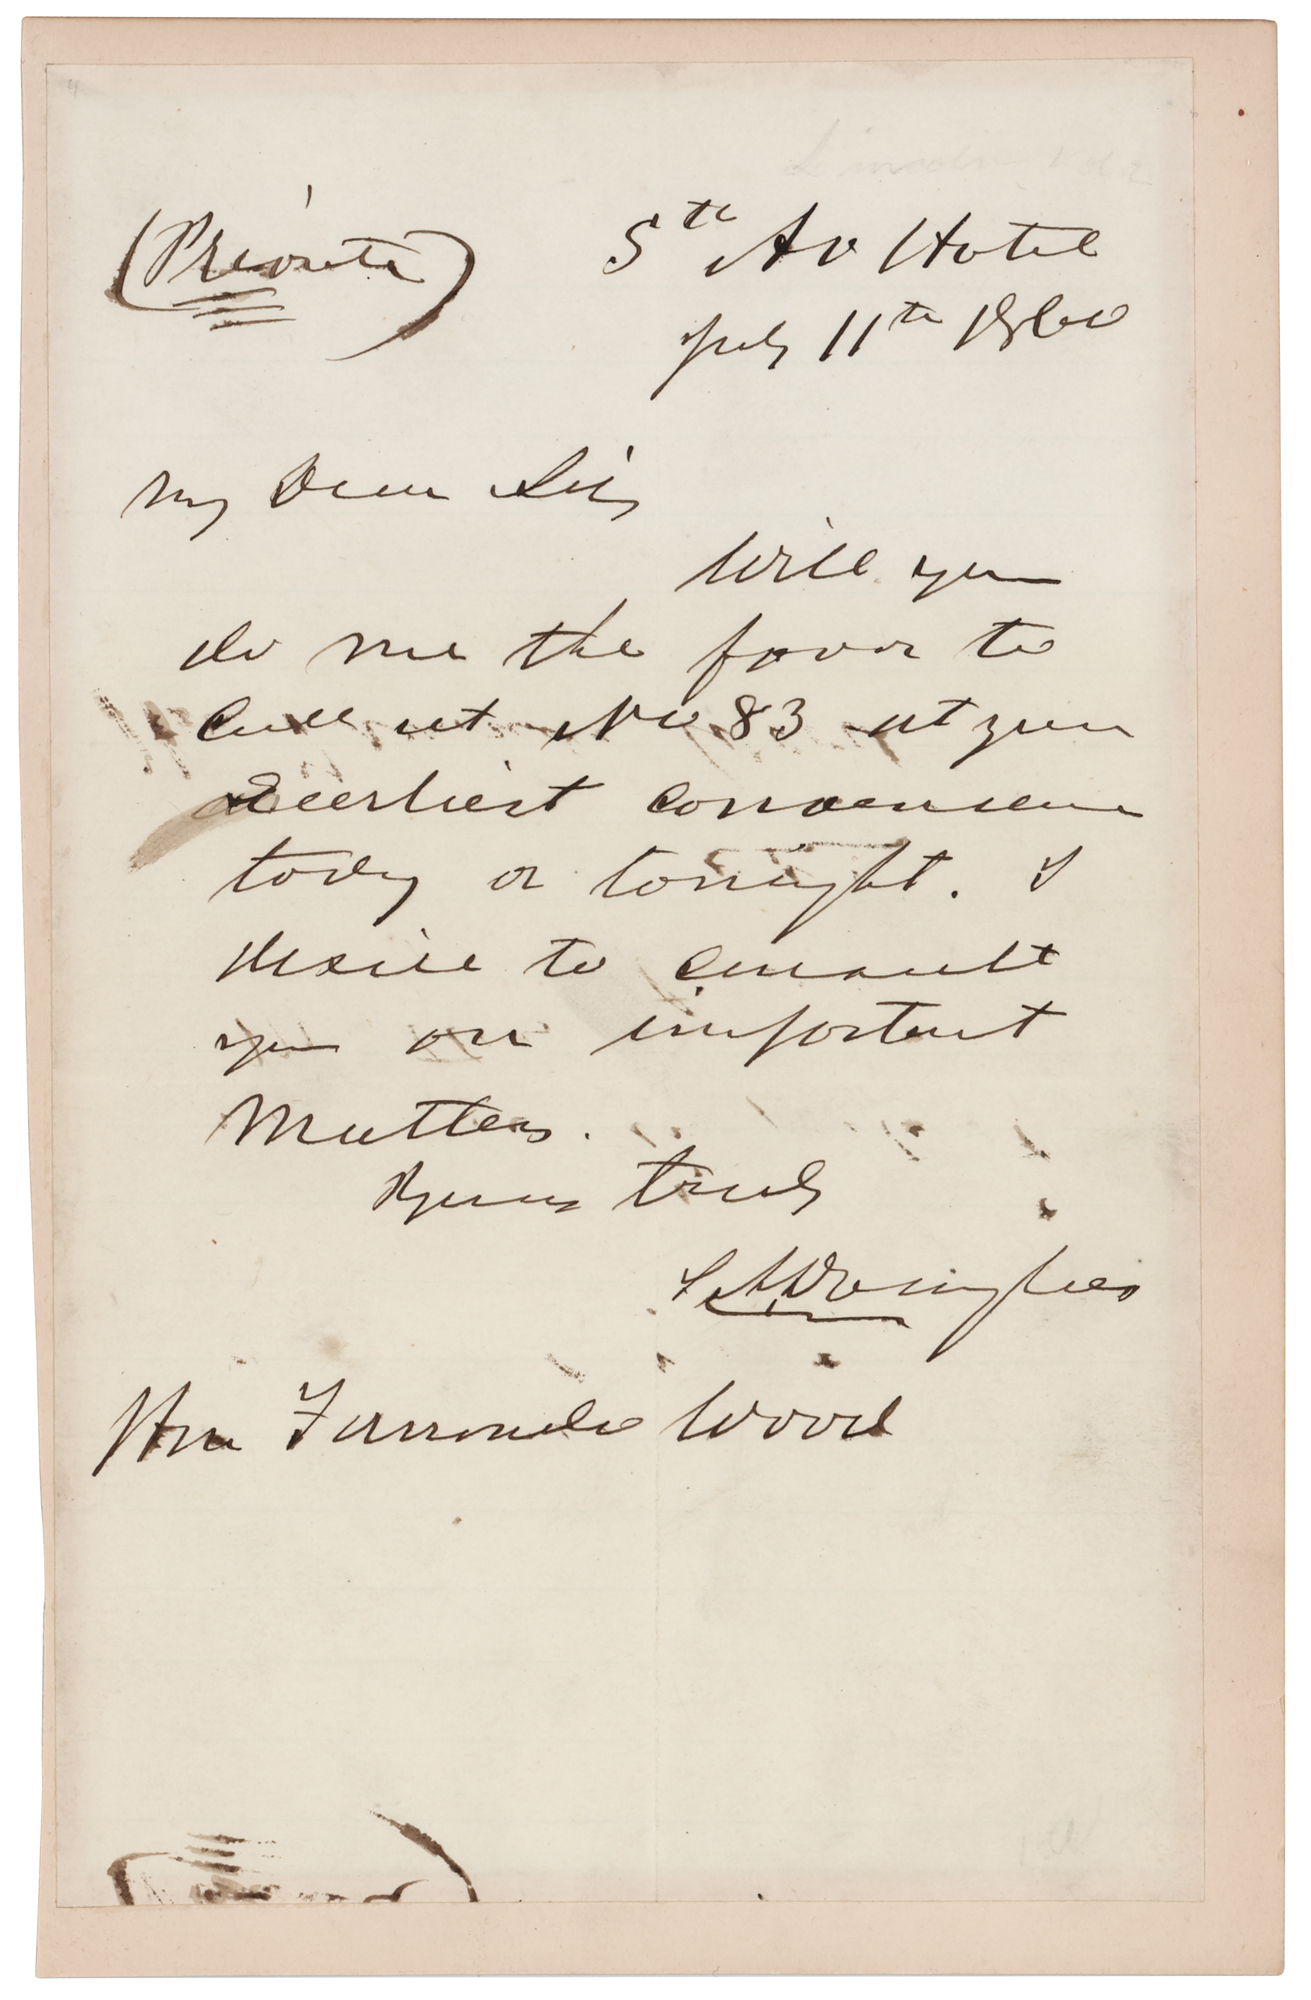 (Private)
5th Av Hotel
July 11th 1860
My Dear Sir,
Will you
do me the favor to
Call at No 83 at your
Earliest convenience
today or tonight. I
desire to consult
you on important
Matters.
Yours truly
S A Douglas
Hon Fernando Wood